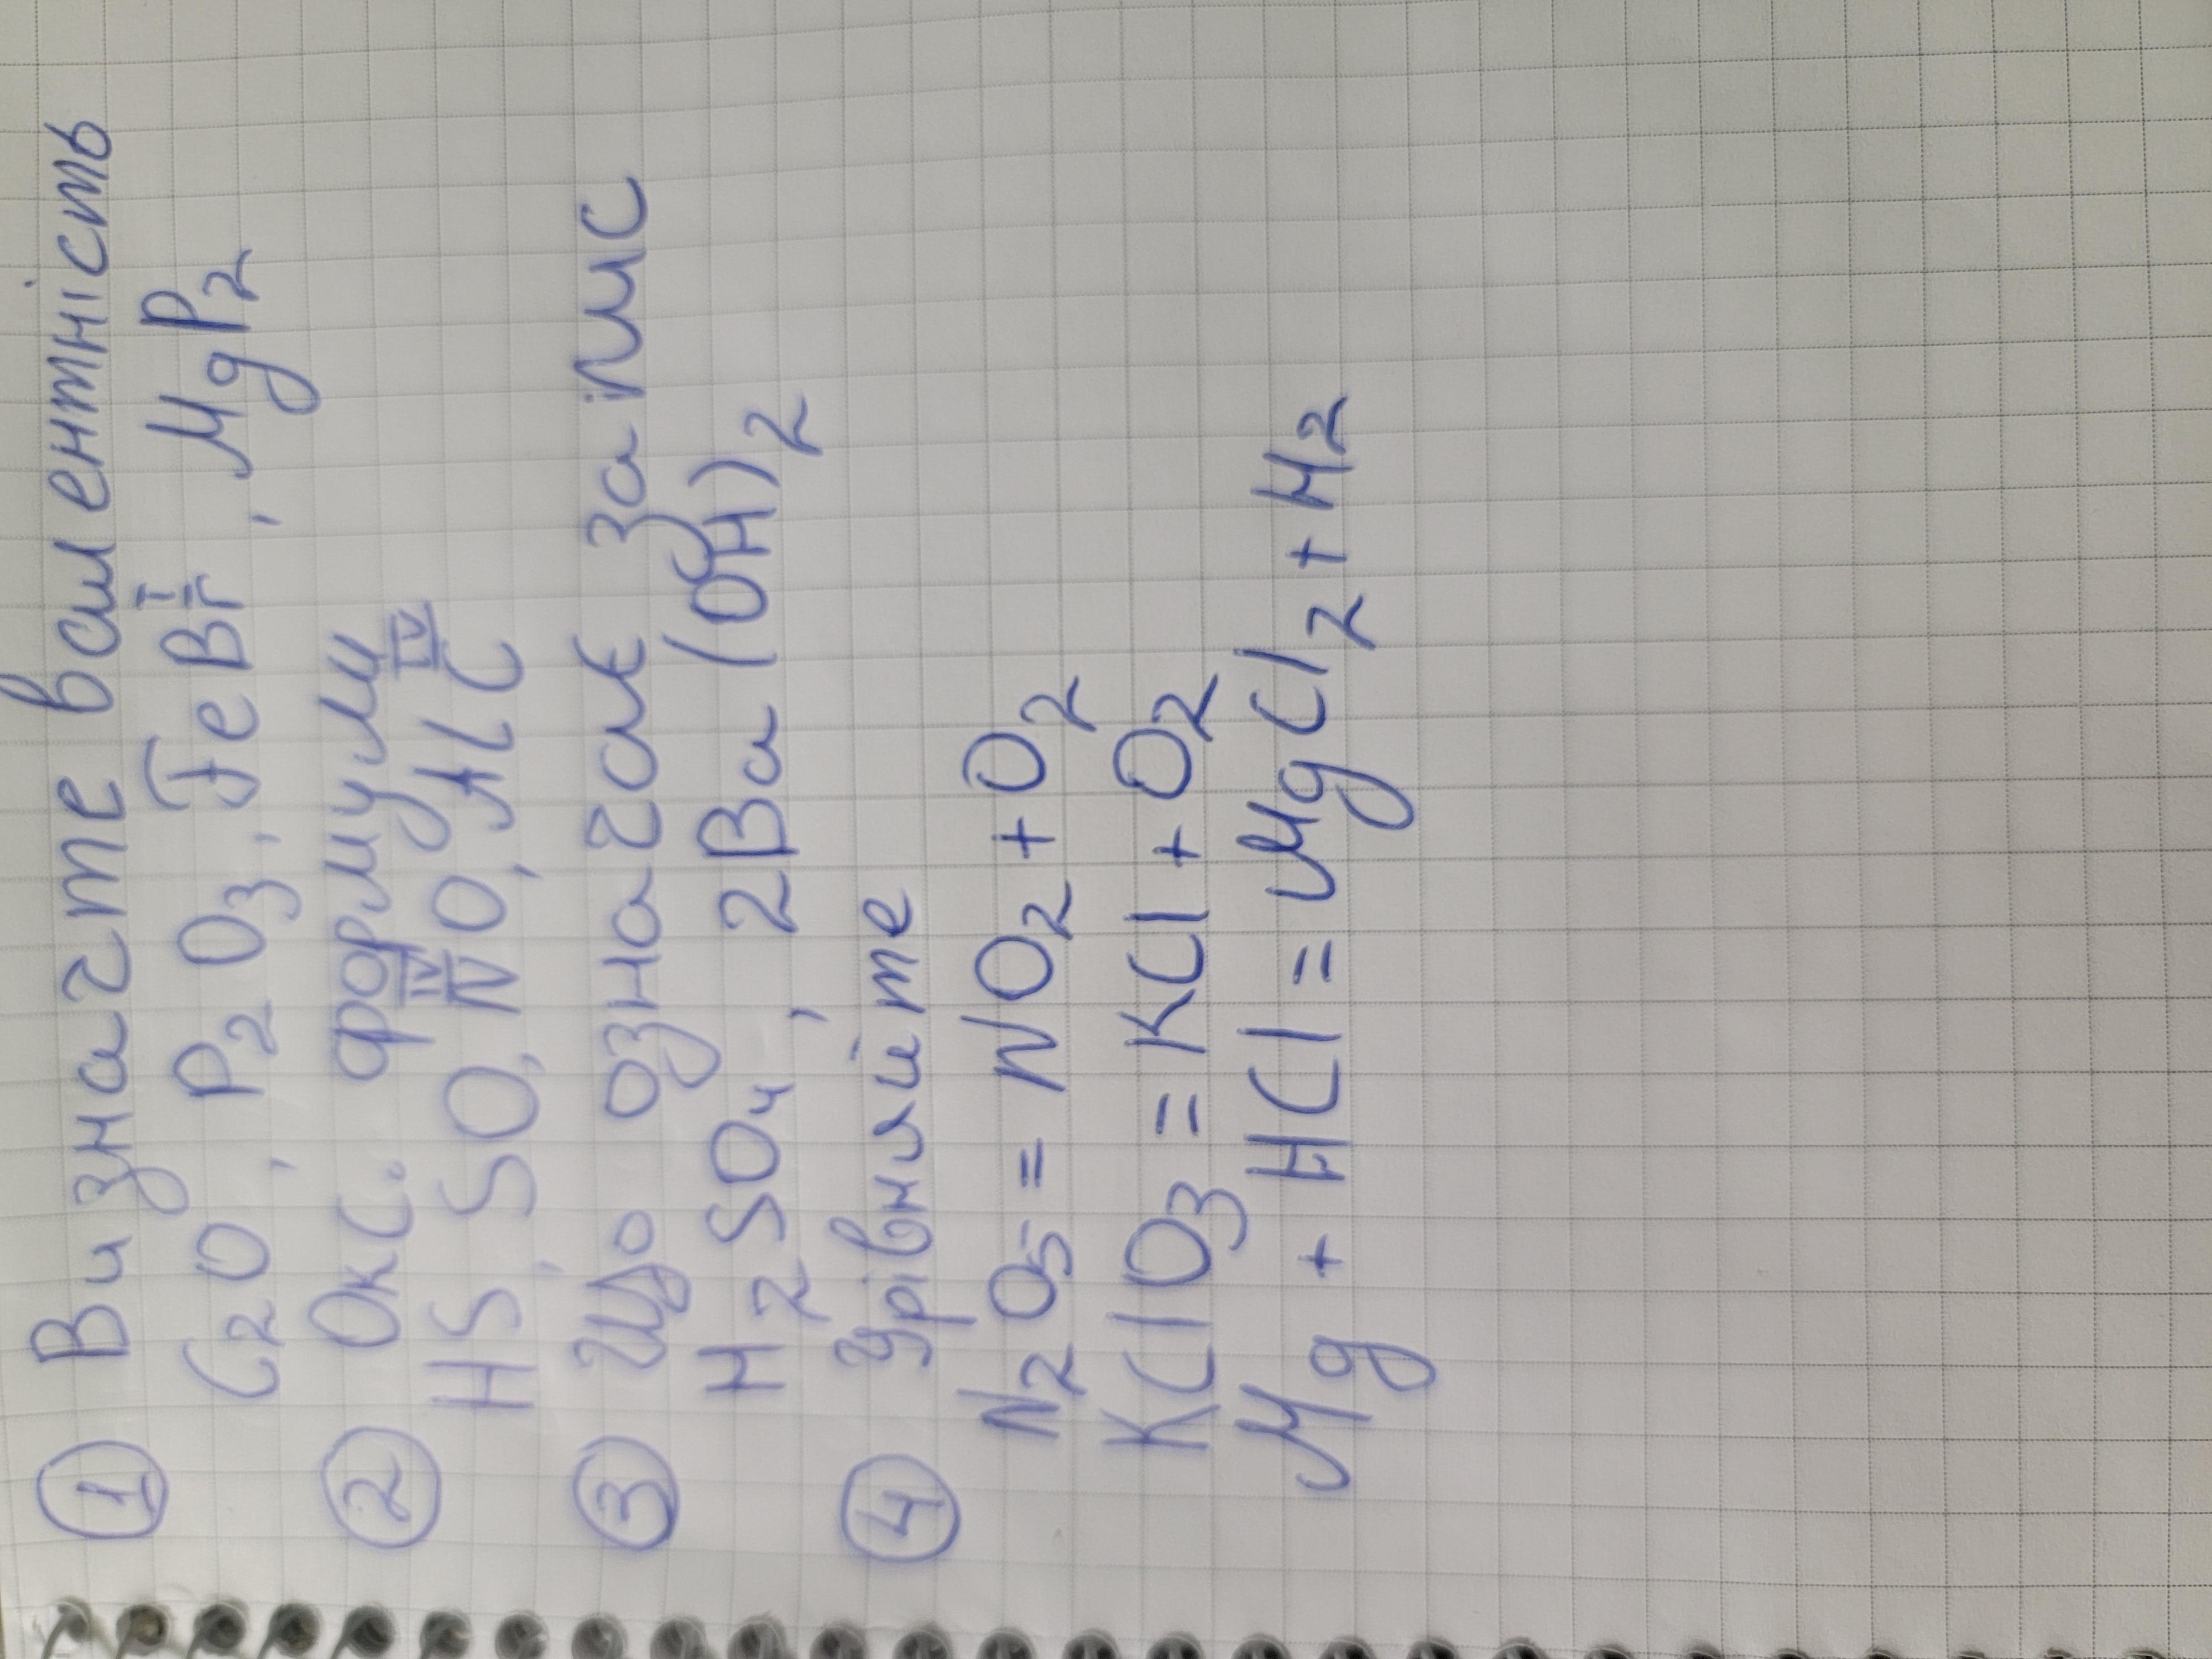 ① Визначте валентність
C₂O, P₂O₃, FeBr, MgP₂
I
② Окс. формули
IV IV
HS, SO, NO, AlC
③ Що означає запис
H₂SO₄, 2Ba(OH)₂
④ Урівняйте
N₂O₅ = NO₂ + O₂
KClO₃ = KCl + O₂
Mg + HCl = MgCl₂ + H₂